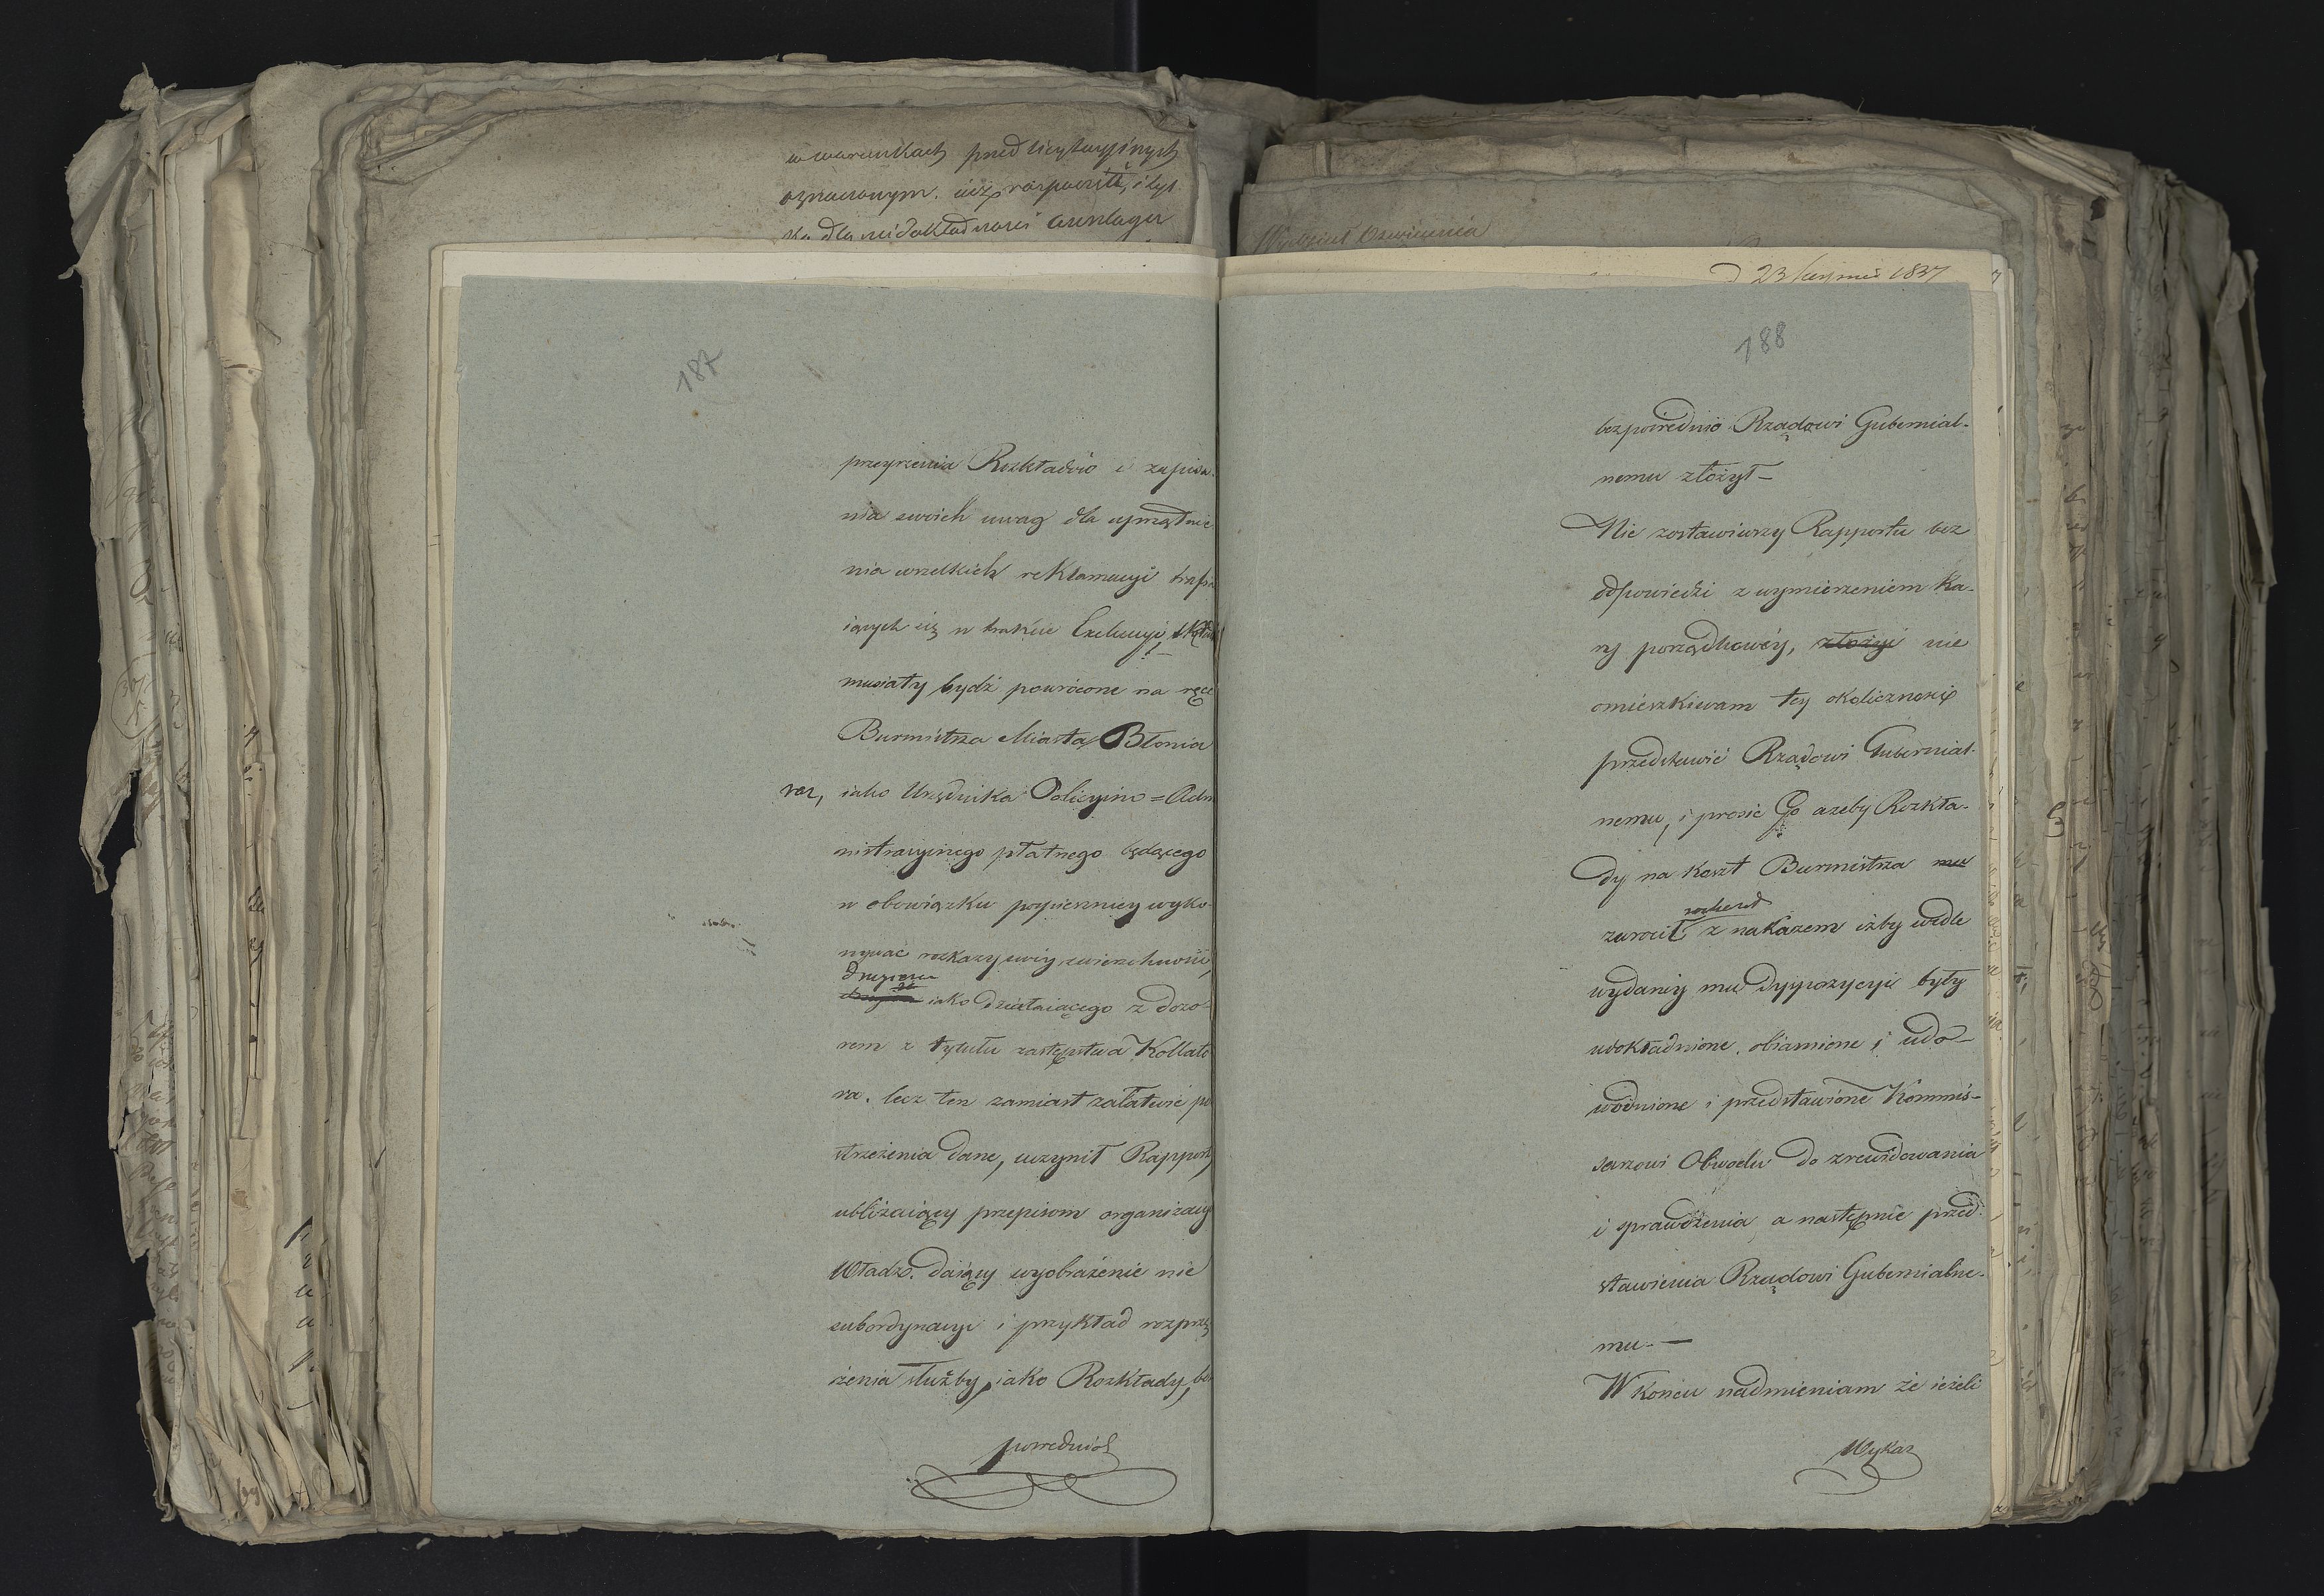 w warunkach przed licytacyjnych
oznaczonym
dla niedokładności
187
przeyrzenia Rozkładów i zapisa-
nia swoich uwag dla uprzątnie
nia wszelkich reklamacyi trafia
iących się w trakcie Exekucyi,
musiały bydź powrócone na ręce
Burmistrza Miasta Błonia
raz, iako Urzędnika Policyino = Adm
nistracyinego płatnego będącego
w obowiązku pospieszniey wyko-
nywać rozkazy swey zwierzchności,
drugi raz
iako działaiącego z dozo-
rem z tytułu zastępstwa Kollato
ra. lecz ten zamiast załatwić po
strzeżenia dane, uczynił Rapport,
ubliżaiący przepisom organizacyi
Władz. daiący wyobrażenie nie
subordynacyi i przykład rozprzę
żenia służby, iako Rozkłady, bez
pośrednio
23 1837
188
bezpośrednio Rządowi Gubernial-
nemu złożył —
Nie zostawiwszy Rapportu bez
odpowiedzi z wymierzeniem ka-
ry porządkowéy, złożyć nie
omieszkiwam tey okoliczności
przedstawić Rządowi Gubernial-
nemu, i prosić Go ażeby Rozkła-
dy na koszt Burmistrza mu
zwrócił z nakazem iżby wedle
wydaney mu dyspozycyi były
udokładnione, obiaśnione i udo-
wodnione i przedstawione Kommis-
sarzowi Obwodu do zrewidowania
i sprawdzenia, a następnie przed-
stawienia Rządowi Gubernialne-
mu. —
W końcu nadmieniam że ieżeli
Wykaz